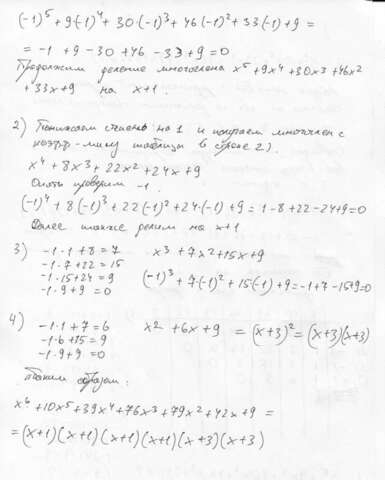 (-1)^5 + 9·(-1)^4 + 30·(-1)^3 + 46(-1)^2 + 33(-1) + 9 =
= -1 + 9 - 30 + 46 - 33 + 9 = 0
Продолжим деление многочлена x^5 + 9x^4 + 30x^3 + 46x^2
+ 33x + 9 на x+1.
2) Понижаем степень на 1 и получаем многочлен с
коэфф-ми из таблицы в строке 2).
x^4 + 8x^3 + 22x^2 + 24x + 9
Опять проверим -1.
(-1)^4 + 8(-1)^3 + 22(-1)^2 + 24·(-1) + 9 = 1-8+22-24+9=0
Далее также делим на x+1
3) -1·1+8=7 x^3 + 7x^2 + 15x + 9
-1·7+22=15
-1·15+24=9 (-1)^3 + 7·(-1)^2 + 15(-1) + 9 = -1+7-15+9=0
-1·9+9=0
4) -1·1+7=6 x^2 + 6x + 9 = (x+3)^2 = (x+3)(x+3)
-1·6+15=9
-1·9+9=0
Таким образом:
x^6 + 10x^5 + 39x^4 + 76x^3 + 79x^2 + 42x + 9 =
= (x+1)(x+1)(x+1)(x+1)(x+3)(x+3)